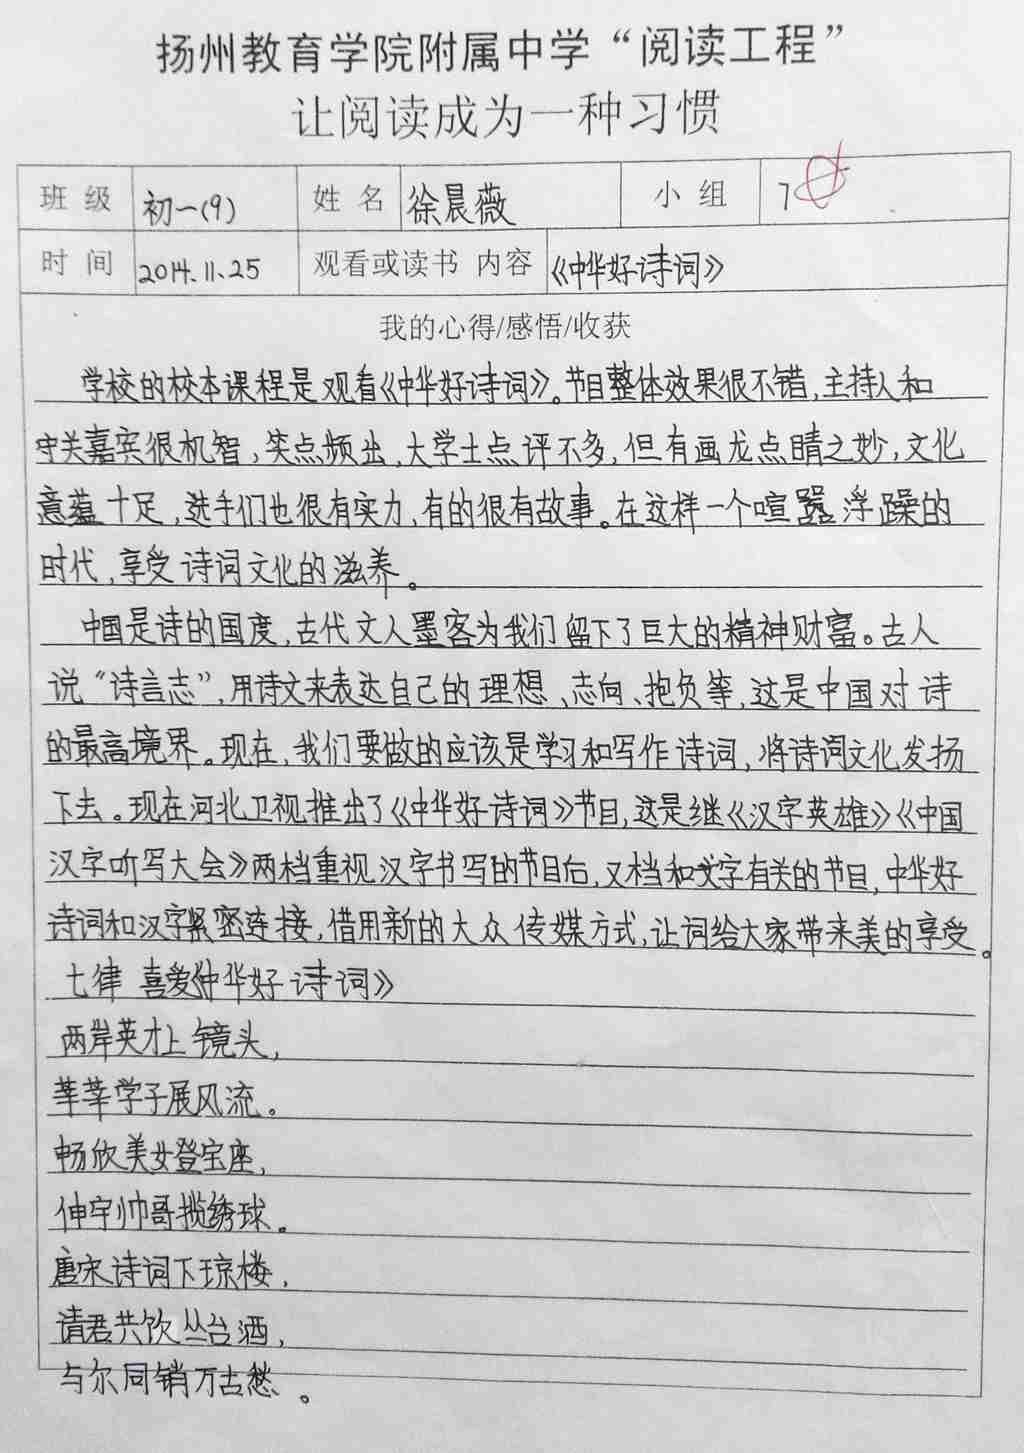 扬州教育学院附属中学“阅读工程”
让阅读成为一种习惯
班 级 初一(9) 姓 名 徐晨薇 小 组 7
时 间 2014.11.25 观看或读书 内容 《中华好诗词》
我的心得/感悟/收获
学校的校本课程是观看《中华好诗词》。节目整体效果很不错,主持人和
守关嘉宾很机智,笑点频出,大学士点评不多,但有画龙点睛之妙,文化
意蕴十足,选手们也很有实力,有的很有故事。在这样一个喧嚣浮躁的
时代,享受诗词文化的滋养。
中国是诗的国度,古代文人墨客为我们留下了巨大的精神财富。古人
说“诗言志”,用诗文来表达自己的理想、志向、抱负等,这是中国对诗
的最高境界。现在,我们要做的应该是学习和写作诗词,将诗词文化发扬
下去。现在河北卫视推出了《中华好诗词》节目,这是继《汉字英雄》《中国
汉字听写大会》两档重视汉字书写的节目后,又档和文字有关的节目,中华好
诗词和汉字紧密连接,借用新的大众传媒方式,让词给大家带来美的享受。
七律 喜爱《中华好诗词》
两岸英才上镜头,
莘莘学子展风流。
畅欣美女登宝座,
伸宇帅哥揽绣球。
唐宋诗词下琼楼,
请君共饮丛台酒,
与尔同销万古愁。